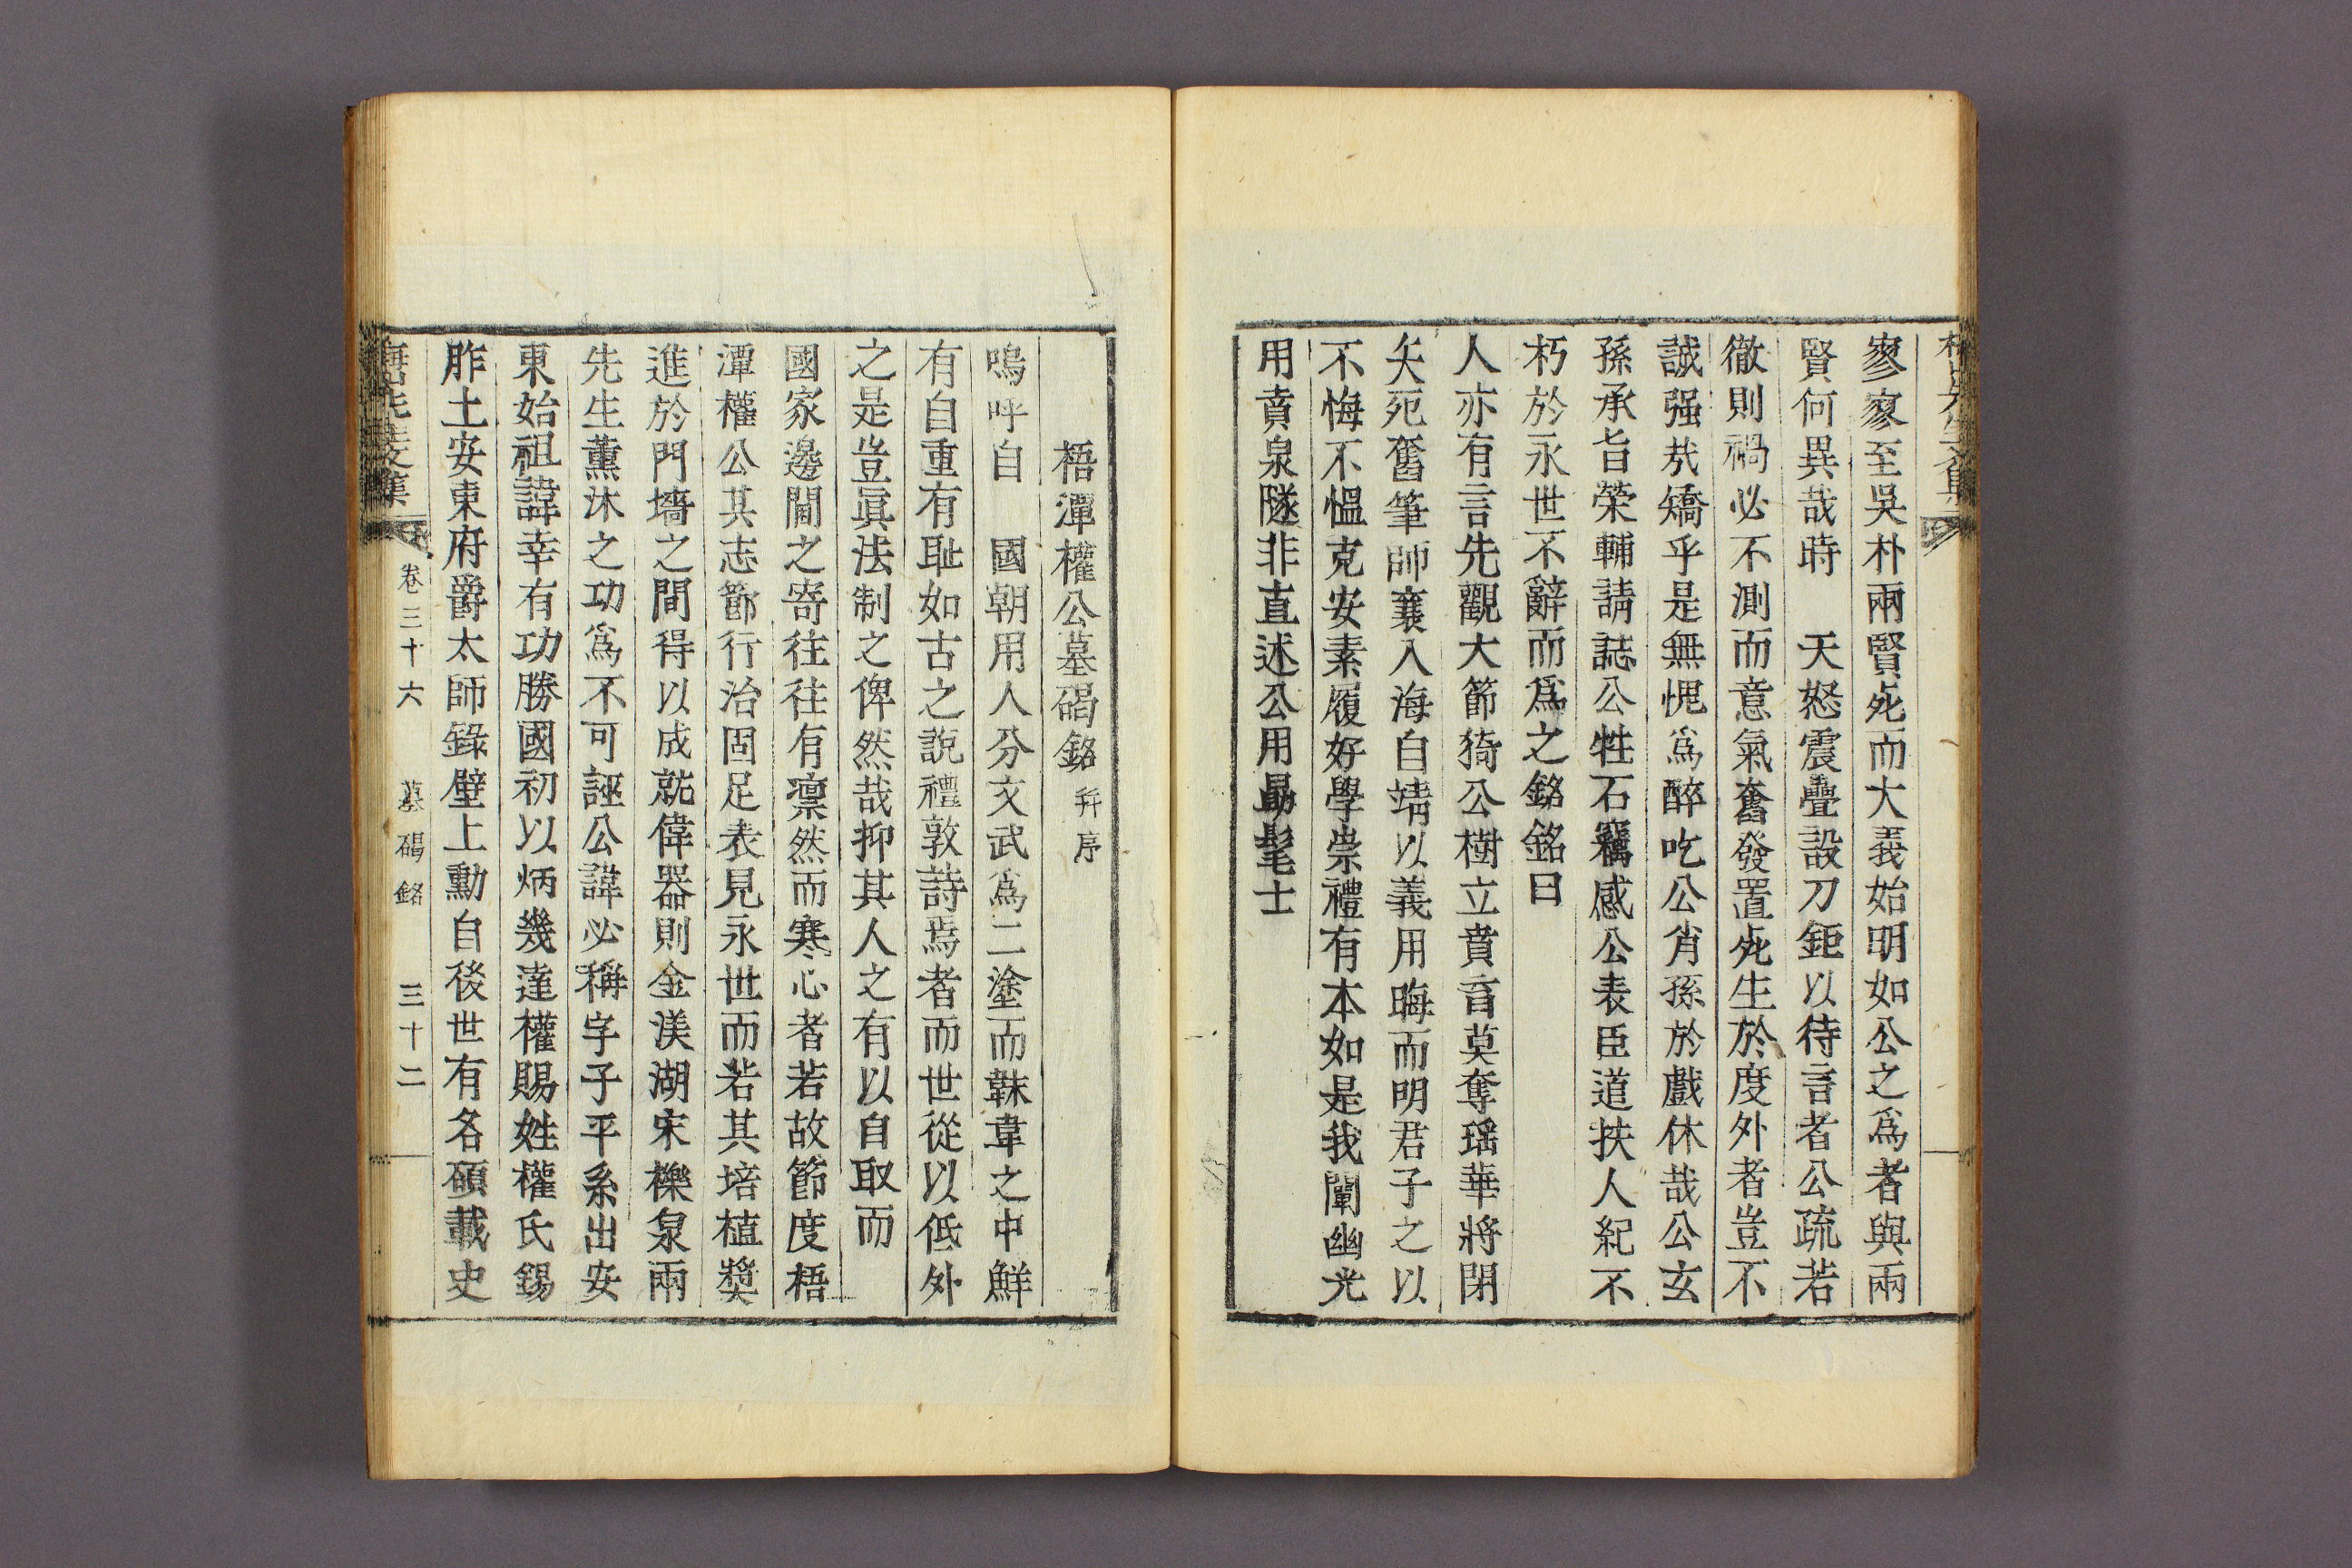 寥寥至吳朴兩賢死而大義始明如公之爲者與兩
賢何異哉時 天怒震疊設刀鉅以待言者公疏若
徹則禍必不測而意氣奮發置死生於度外者豈不
誠强哉矯乎是無愧爲醉吃公肖孫於戲休哉公玄
孫承旨榮輔請誌公牲石竊感公表臣道扶人紀不
朽於永世不辭而爲之銘銘曰
人亦有言先觀大節猗公樹立賁音莫奪瑶華將閉
矢死奮筆師襄入海自靖以義用晦而明君子之以
不悔不慍克安素履好學崇禮有本如是我闡幽光
用賁泉隧非直述公用勗髦士
梧潭權公墓碣銘 幷序
嗚呼自 國朝用人分文武爲二塗而韎韋之中鮮
有自重有耻如古之說禮敦詩焉者而世從以低外
之是豈眞法制之俾然哉抑其人之有以自取而
國家邊閫之寄往往有凛然而寒心者若故節度梧
潭權公其志節行治固足表見永世而若其培植奬
進於門墻之間得以成就偉器則金渼湖宋櫟泉兩
先生薰沐之功爲不可誣公諱必稱字子平系出安
東始祖諱幸有功勝國初以炳幾達權賜姓權氏錫
胙土安東府爵太師錄壁上勳自後世有各碩載史
卷三十六 墓碣銘 三十二